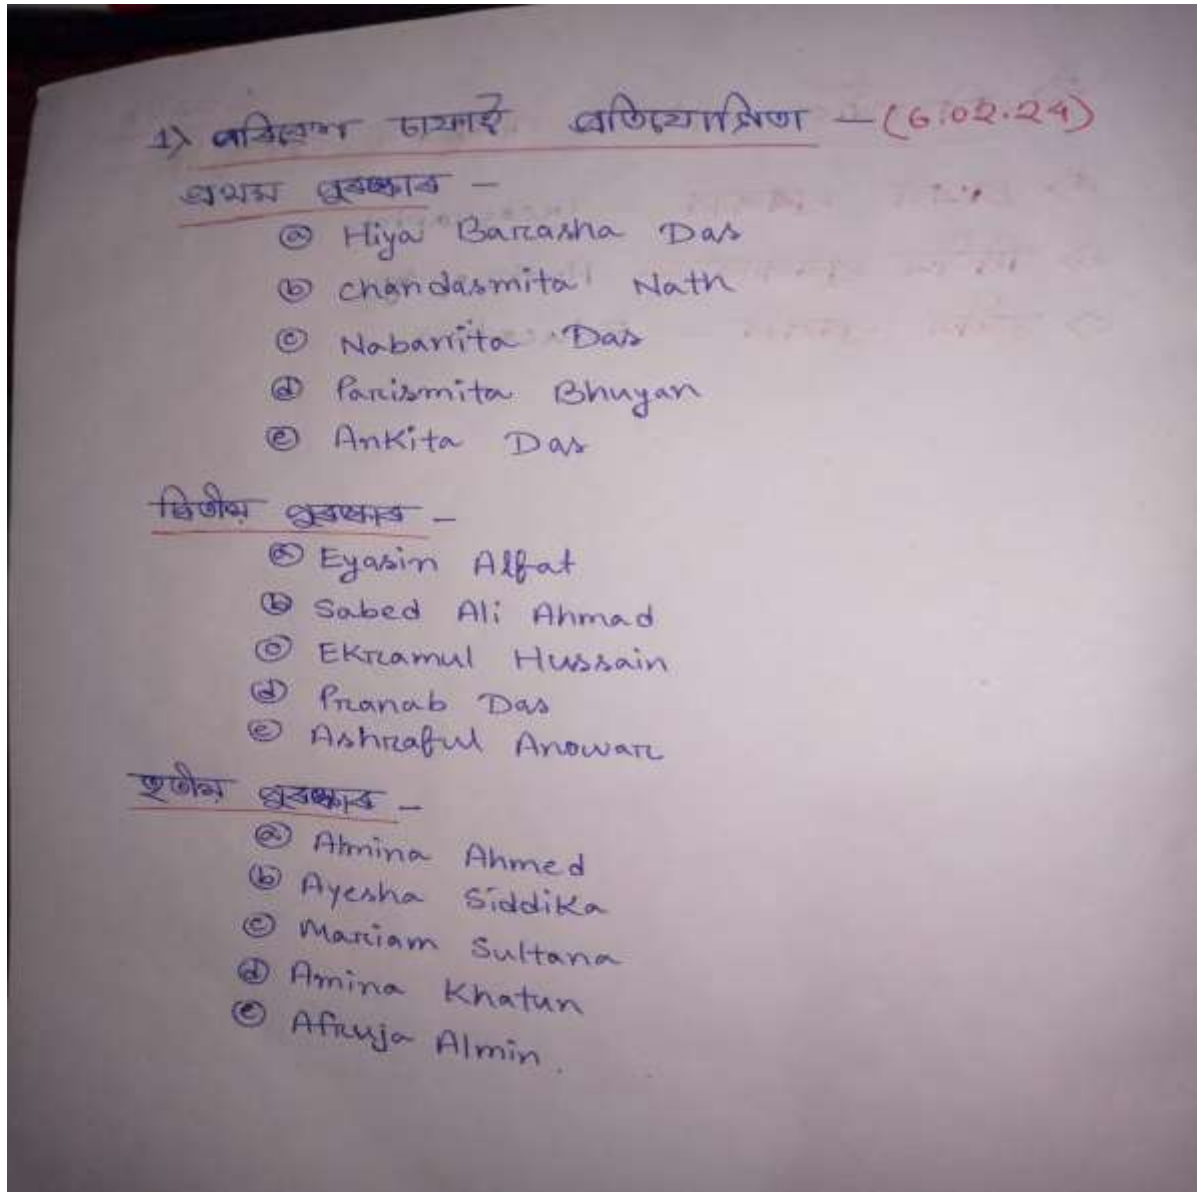 1) পৰিবেশ চাফাই প্ৰতিযোগিতা – (6.02.24)
প্ৰথম পুৰস্কাৰ –
ⓐ Hiya Barasha Das
ⓑ Chandasmita Nath
ⓒ Nabanita Das
ⓓ Parismita Bhuyan
ⓔ Ankita Das
দ্বিতীয় পুৰস্কাৰ –
ⓐ Eyasin Alfat
ⓑ Sabed Ali Ahmad
ⓒ Ekramul Hussain
ⓓ Pranab Das
ⓔ Ashraful Anowar
তৃতীয় পুৰস্কাৰ –
ⓐ Almina Ahmed
ⓑ Ayesha Siddika
ⓒ Mariam Sultana
ⓓ Amina Khatun
ⓔ Afruja Almin.